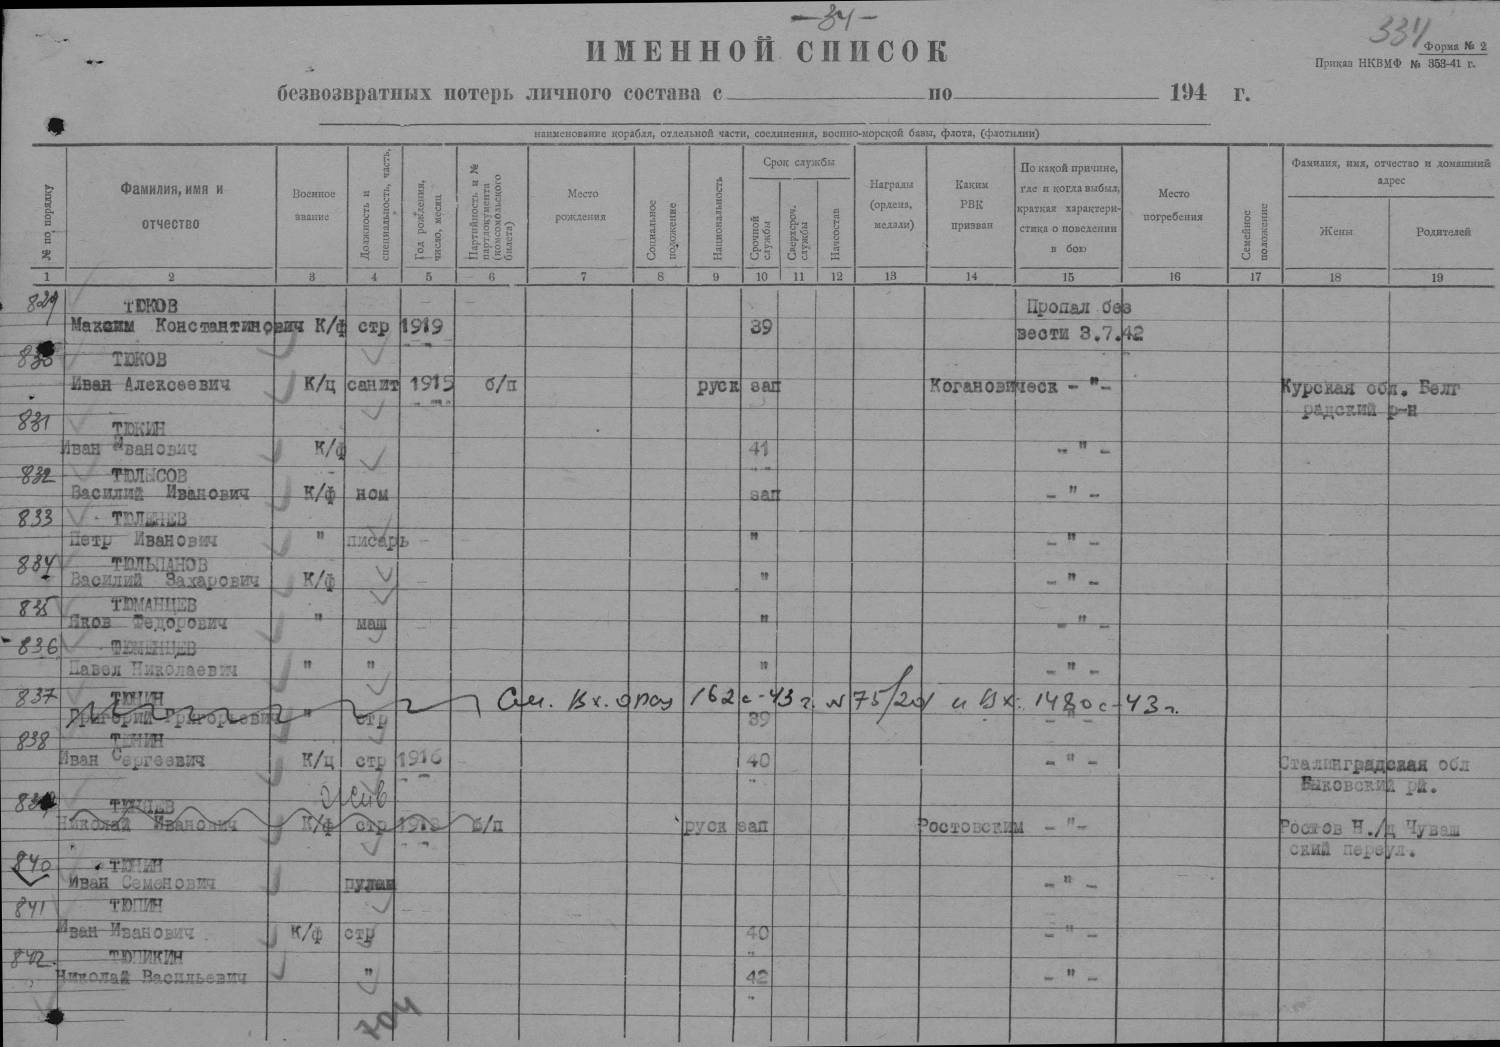 — 34 —
334
ИМЕННОЙ СПИСОК
Форма № 2
Приказ НКВМФ № 353-41 г.
безвозвратных потерь личного состава с по 194 г.
наименование корабля, отдельной части, соединения, военно-морской базы, флота, (флотилии)
№ по порядку
Фамилия, имя и отчество
Военное звание
Должность и специальность, часть,
Год рождения, число, месяц
Партийность и № партдокумента (комсомольского билета)
Место рождения
Социальное положение
Национальность
Срок службы
Срочной службы
Сверхсроч. службы
Начсостав
Награды (ордена, медали)
Каким РВК призван
По какой причине, где и когда выбыл, краткая характеристика о поведении в бою
Место погребения
Семейное положение
Фамилия, имя, отчество и домашний адрес
Жены
Родителей
1 2 3 4 5 6 7 8 9 10 11 12 13 14 15 16 17 18 19
829 ТЮКОВ Пропал без
Максим Константинович К/ф стр 1919 39 вести 3.7.42
830 ТЮКОВ
Иван Алексеевич К/ц санит 1915 б/п руск зап Когановическ – " – Курская обл. Белг
радский р-н
831 ТЮКИН
Иван Иванович К/ф 41 – " –
832 ТЮЛЫСОВ
Василий Иванович К/ф ком зап – " –
833 ТЮЛЕНЕВ
Петр Иванович " писарь " – " –
834 ТЮЛЬПАНОВ
Василий Захарович К/ф " – " –
835 ТЮМАНЦЕВ
Яков Федорович " маш " – " –
836 ТЮМЕНЦЕВ
Павел Николаевич " " " – " –
837 ТЮНИН См. Вх. 162с-43 г. № 75/201 и Вх. 1480с-43 г.
Григорий Григорьевич " стр 39 – " –
838 ТЮНИН
Иван Сергеевич К/ц стр 1916 40 – " – Сталинградская обл
Быковский рй.
839 жив
Николай Иванович К/ф стр б/п руск зап Ростовским – " – Ростов Н./Д Чуваш
ский переул.
840 ТЮНИН
Иван Семенович пулем – " –
841 ТЮПИН
Иван Иванович К/ф стр 40 – " –
842. ТЮПИКИН
Николай Васильевич " 42 – " –
704